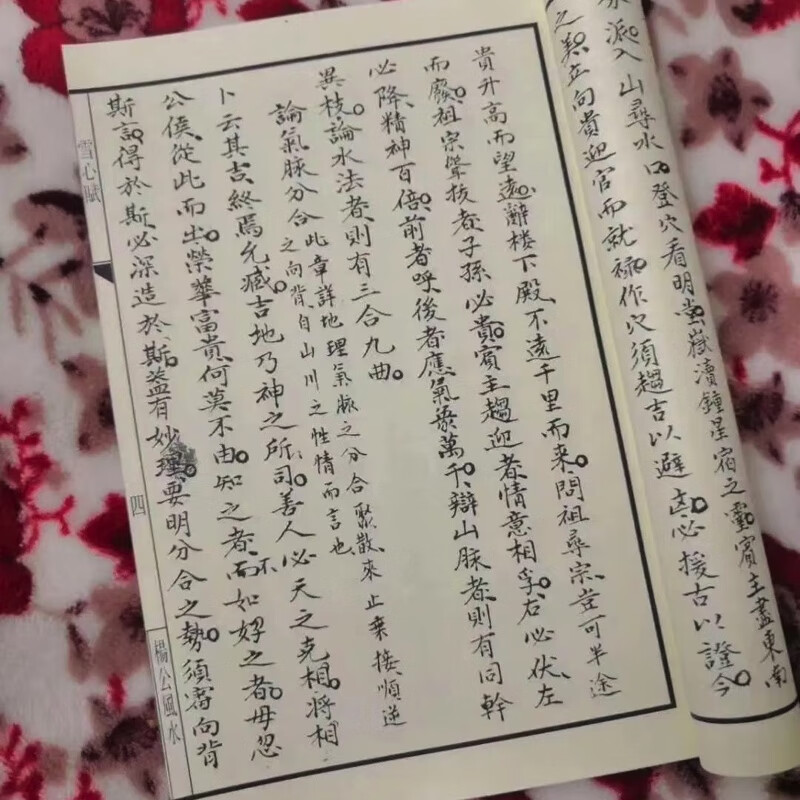 派入山尋水口。登穴看明堂。嶽瀆鍾星宿之靈。賓主盡東南
之美。立向貴迎官而就祿。作穴須趨吉以避凶。必援古以證今。
貴升高而望遠。辭楼下殿。不遠千里而來。問祖尋宗。豈可半途
而廢。祖宗聳拔者。子孫必貴。賓主趨迎者。情意相孚。右必伏、左
必降。精神百倍。前者呼後者應。氣象萬千。辯山脉者。則有同幹
異枝。論水法者。則有三合九曲。
論氣脉分合
此章詳地理氣脉之分合聚散來止棄接順逆
之向背自山川之性情而言也
卜云其吉。終焉允臧。吉地乃神之所司。善人必天之克相。將相
公侯。從此而出。榮華富貴。何莫不由。知之者。而不如好之者。毋忽
斯言。得於斯必深造於斯。蓋有妙理。要明分合之勢。須審向背
雪心賦
四
楊公風水